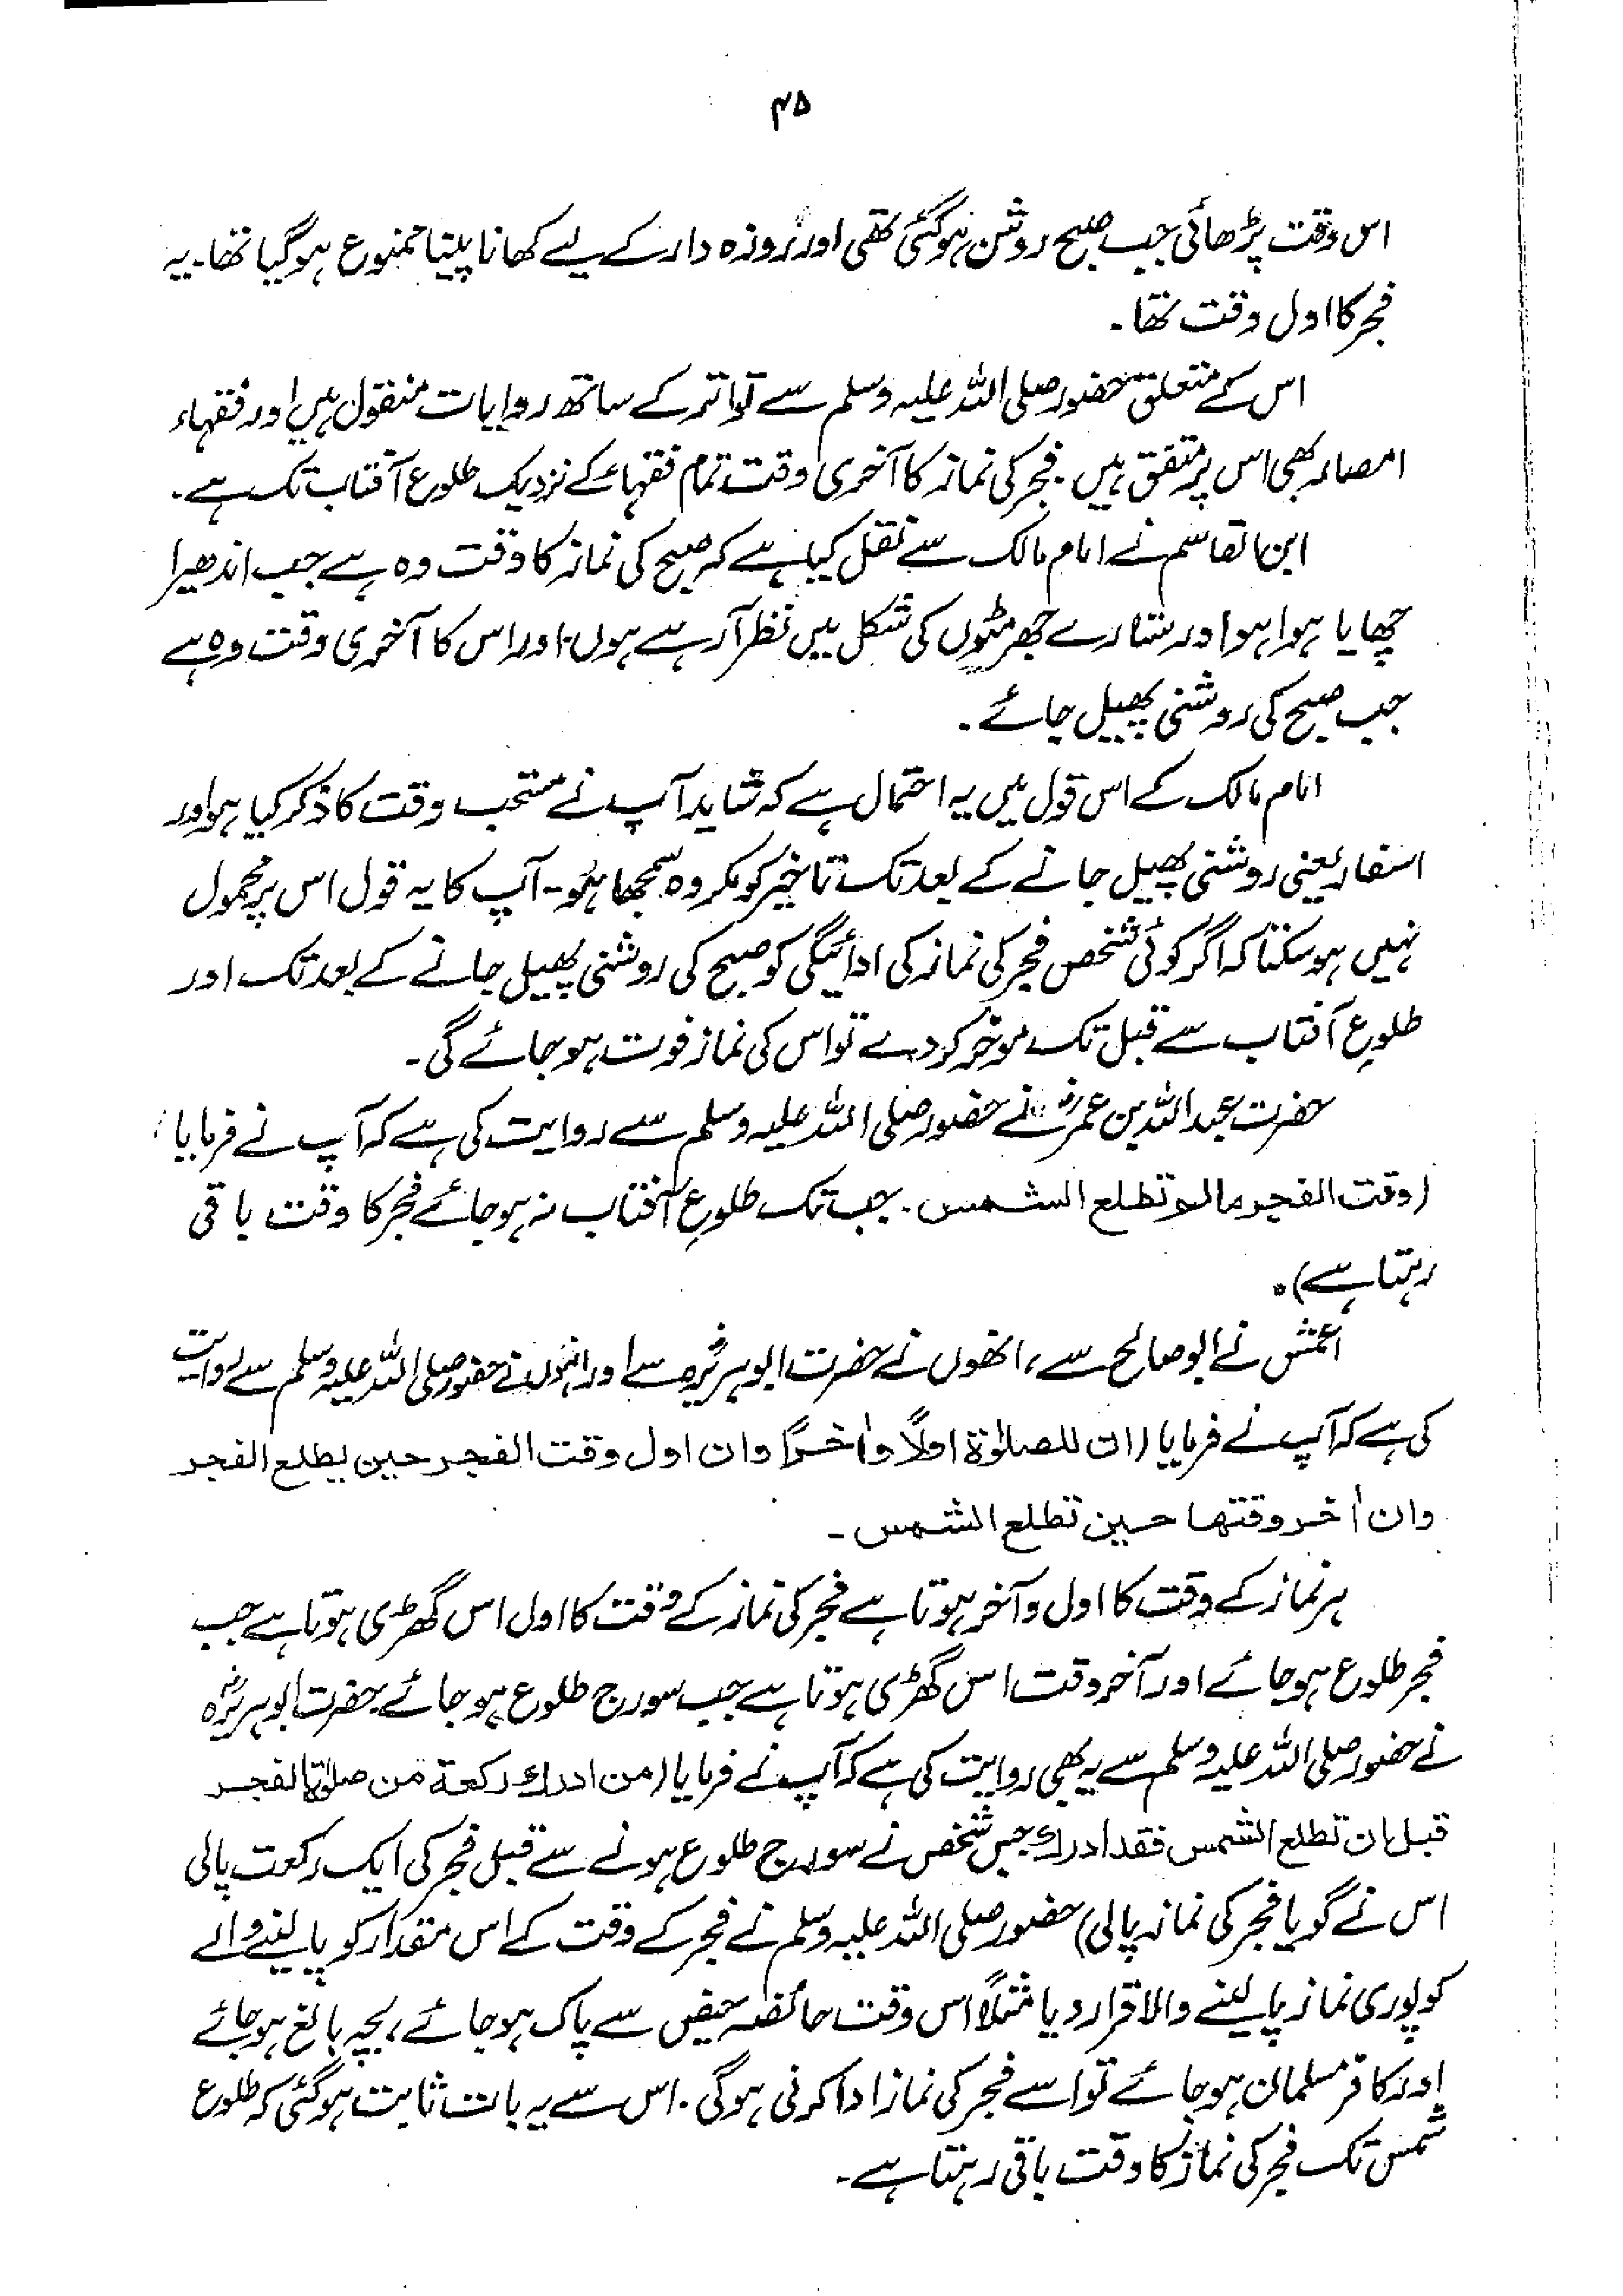 ۴۵
اس وقت پڑھائی جب صبح روشن ہوگئی تھی اور روزہ دار کے لیے کھانا پینا ممنوع ہوگیا تھا۔ یہ
فجر کا اول وقت تھا۔
اس کے متعلق حضور صلی اللہ علیہ وسلم سے تواتر کے ساتھ روایات منقول ہیں اور فقہاء
امصار بھی اس پر متفق ہیں۔ فجر کی نماز کا آخری وقت تمام فقہاء کے نزدیک طلوع آفتاب تک ہے۔
ابن القاسم نے امام مالک سے نقل کیا ہے کہ صبح کی نماز کا وقت وہ ہے جب اندھیرا
چھایا ہوا ہو اور ستارے جھرمٹوں کی شکل میں نظر آرہے ہوں، اور اس کا آخری وقت وہ ہے
جب صبح کی روشنی پھیل جائے۔
امام مالک کے اس قول میں یہ احتمال ہے کہ شاید آپ نے مستحب وقت کا ذکر کیا ہو اور
اسفار یعنی روشنی پھیل جانے کے بعد تک تاخیر کو مکروہ سمجھا ہو۔ آپ کا یہ قول اس پر محمول
نہیں ہوسکتا کہ اگر کوئی شخص فجر کی نماز کی ادائیگی کو صبح کی روشنی پھیل جانے کے بعد تک اور
طلوعِ آفتاب سے قبل تک موخر کردے تو اس کی نماز فوت ہوجائے گی۔
حضرت عبداللہ بن عمرؓ نے حضور صلی اللہ علیہ وسلم سے روایت کی ہے کہ آپ نے فرمایا
(وقت الفجر مالم تطلع الشمس۔ جب تک طلوعِ آفتاب نہ ہوجائے فجر کا وقت باقی
رہتا ہے)۔
اعمش نے ابوصالح سے، انھوں نے حضرت ابوہریرہؓ سے اور انہوں نے حضور صلی اللہ علیہ وسلم سے روایت
کی ہے کہ آپ نے فرمایا (ان للصلوٰۃ اولاً واٰخرًا وان اول وقت الفجر حین یطلع الفجر
وان اٰخر وقتھا حین تطلع الشمس۔
ہر نماز کے وقت کا اول و آخر ہوتا ہے فجر کی نماز کے وقت کا اول اس گھڑی ہوتا ہے جب
فجر طلوع ہوجائے اور آخر وقت اس گھڑی ہوتا ہے جب سورج طلوع ہوجائے حضرت ابوہریرہؓ
نے حضور صلی اللہ علیہ وسلم سے یہ بھی روایت کی ہے کہ آپ نے فرمایا (من ادرك ركعة من صلوٰۃ الفجر
قبل ان تطلع الشمس فقد ادرك جس شخص نے سورج طلوع ہونے سے قبل فجر کی ایک رکعت پالی
اس نے گویا فجر کی نماز پالی) حضور صلی اللہ علیہ وسلم نے فجر کے وقت کے اس مقدار کو پالینے والے
کو پوری نماز پالینے والا قرار دیا مثلاً اس وقت حائضہ حیض سے پاک ہوجائے، بچہ بالغ ہوجائے
اور کافر مسلمان ہوجائے تو اسے فجر کی نماز ادا کرنی ہوگی۔ اس سے یہ بات ثابت ہوگئی کہ طلوع
شمس تک فجر کی نماز کا وقت باقی رہتا ہے۔